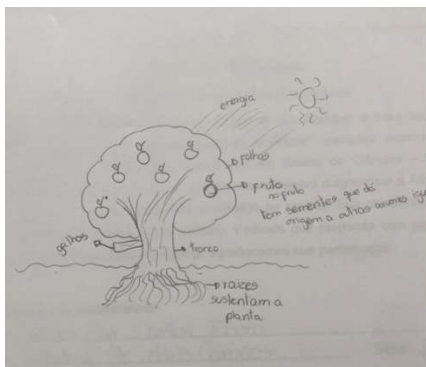 energia
folhas
fruto
no fruto
tem sementes que dá
origem a outras árvores
galhos
tronco
raízes
sustentam a
planta